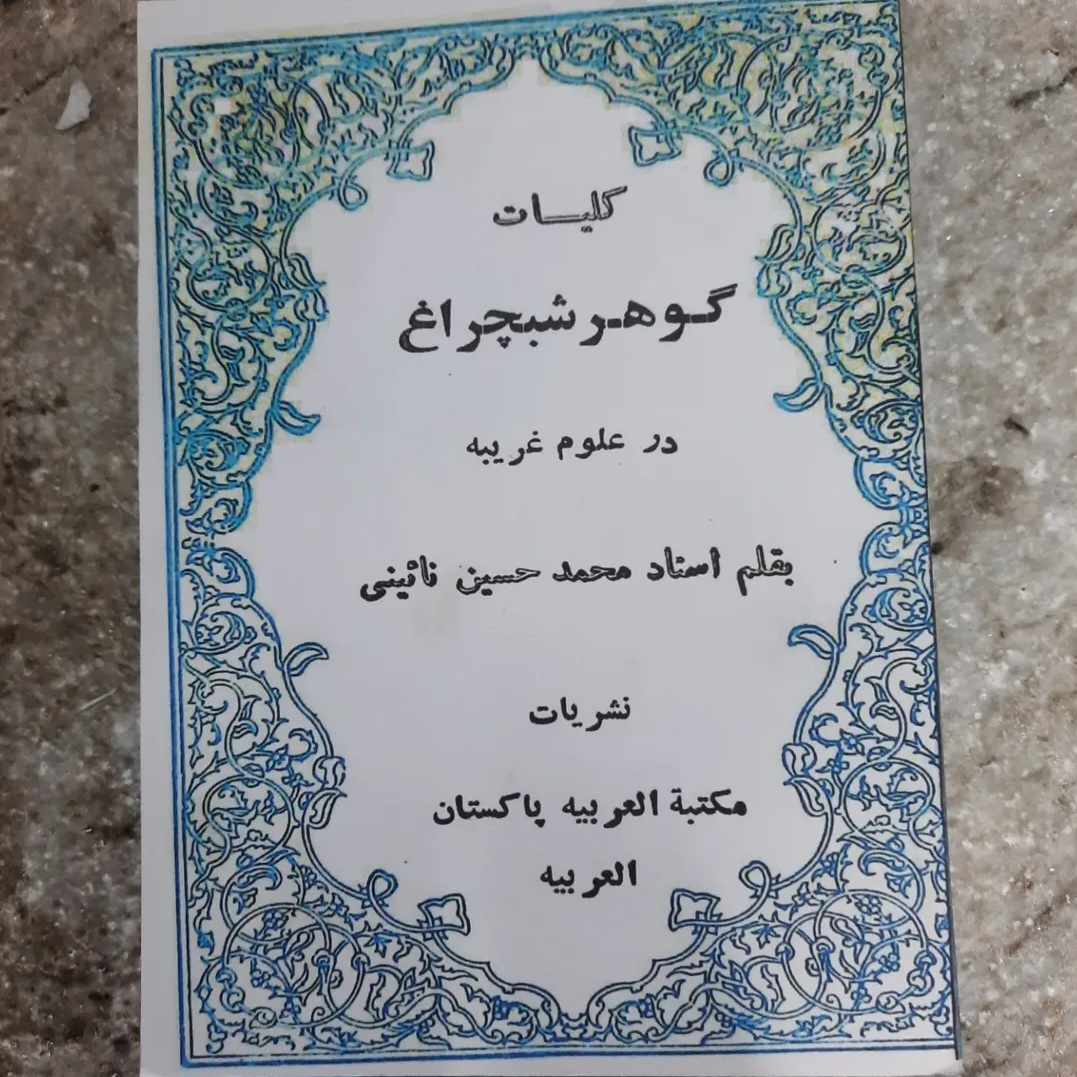 کلیات
گوهر شبچراغ
در علوم غریبه
بقلم استاد محمد حسین نائینی
نشریات
مکتبة العربیه پاکستان
العربیه